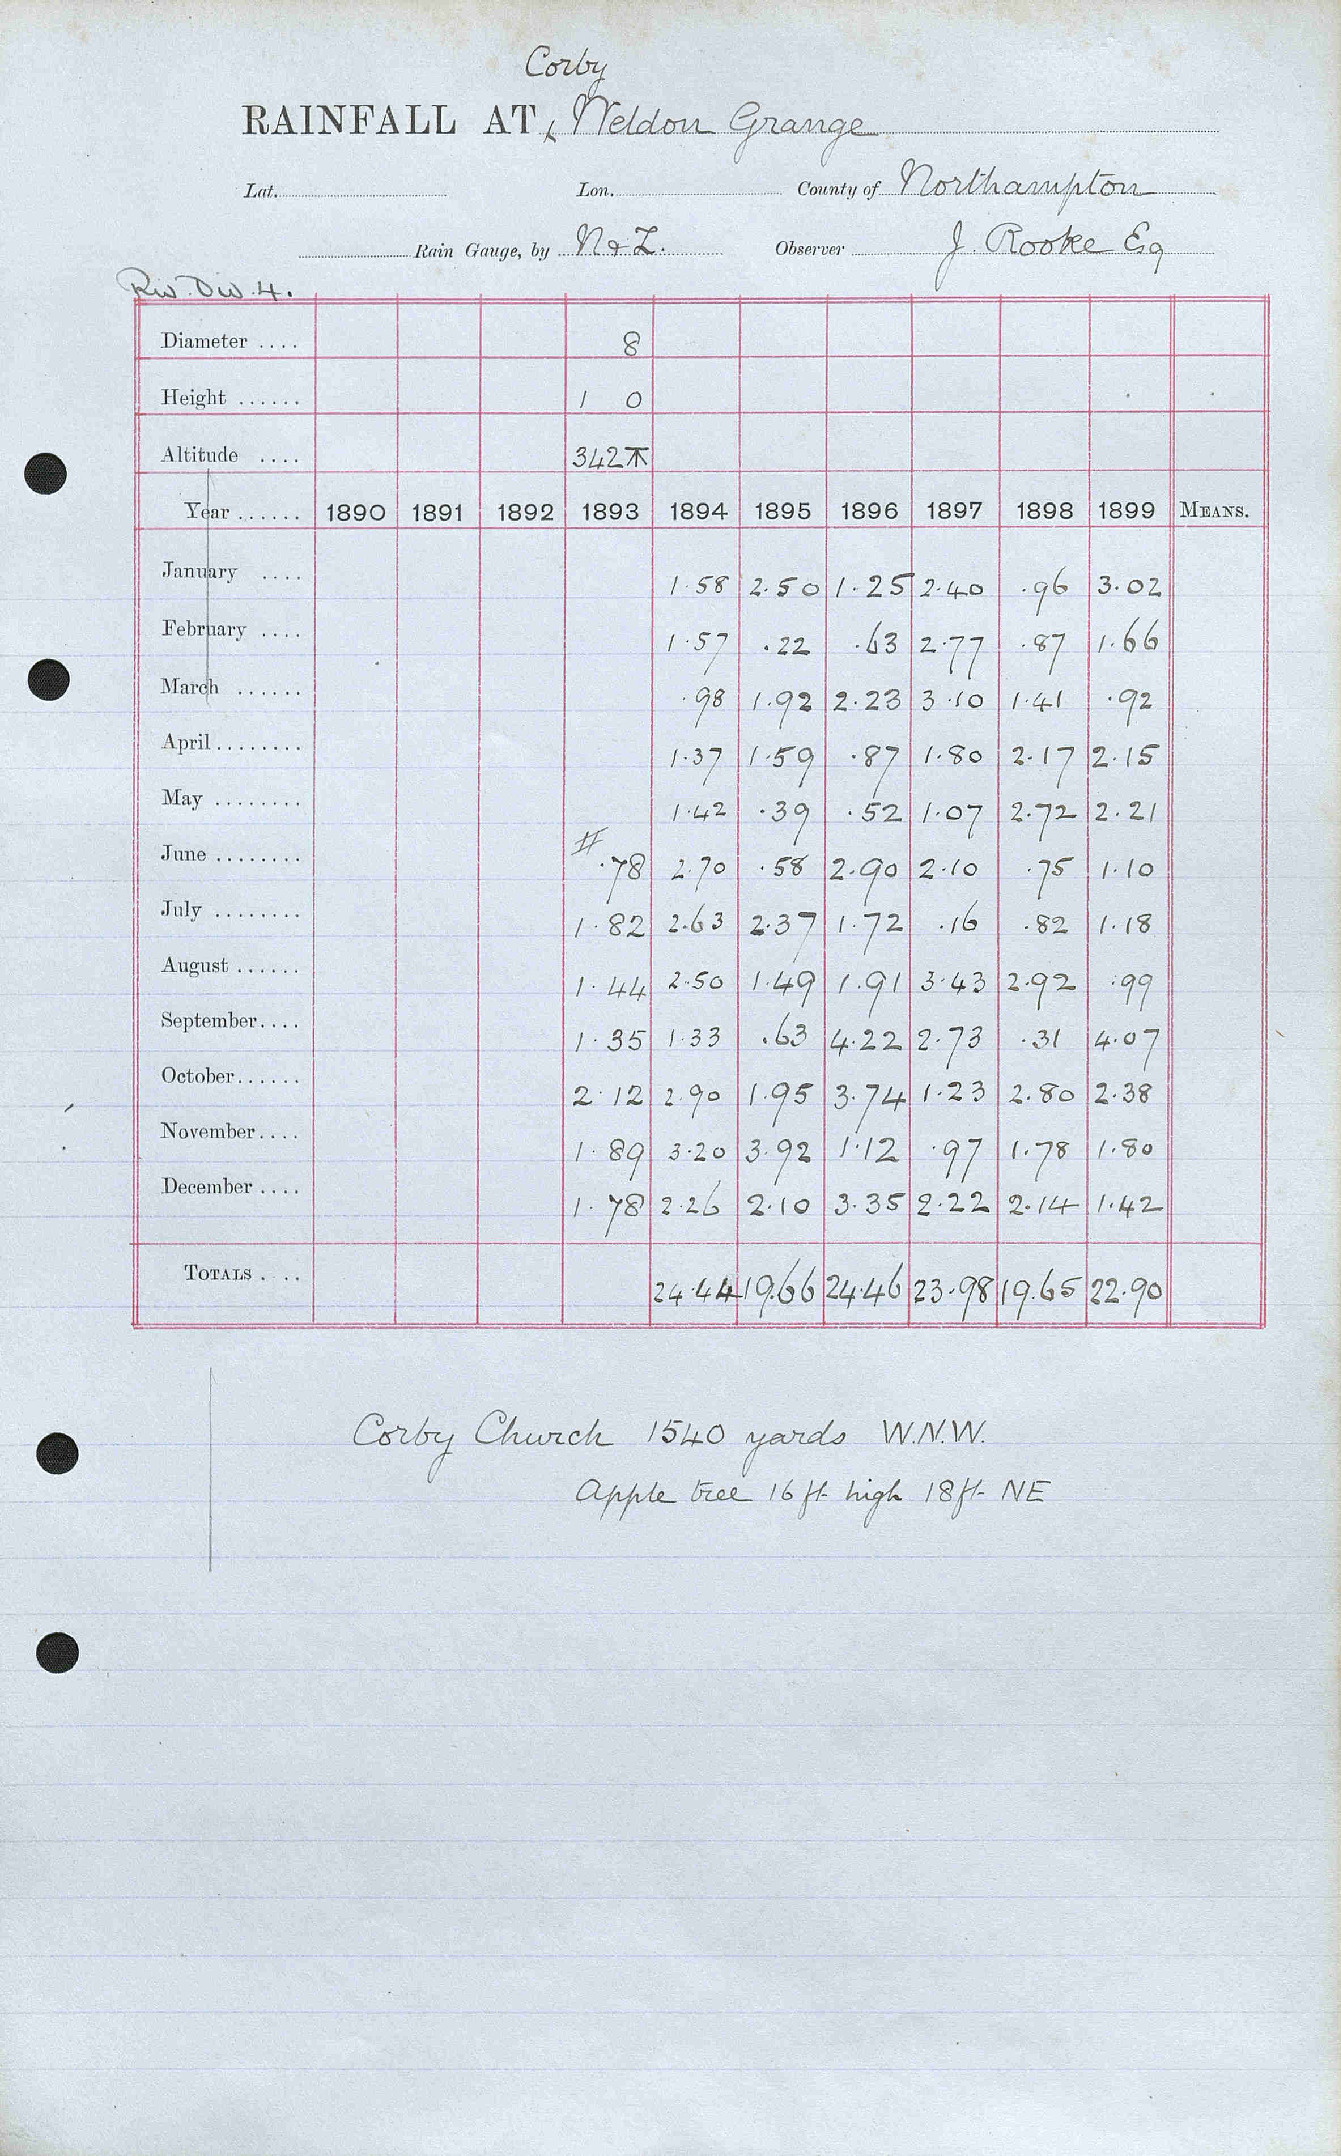 Corby
RAINFALL AT Weldon Grange
Lat. Lon. County of Northampton
Rain Gauge, by N & Z. Observer J. Rooke Esq
Riv. Div. 4.
Diameter .... 8
Height ...... 1 0
Altitude .... 342
Year ...... 1890 1891 1892 1893 1894 1895 1896 1897 1898 1899 MEANS.
January .... 1.58 2.50 1.25 2.40 .96 3.02
February .... 1.57 .22 .63 2.77 .87 1.66
March ...... .98 1.92 2.23 3.10 1.41 .92
April ........ 1.37 1.59 .87 1.80 2.17 2.15
May ........ 1.42 .39 .52 1.07 2.72 2.21
June ........ # .78 2.70 .58 2.90 2.10 .75 1.10
July ........ 1.82 2.63 2.37 1.72 .16 .82 1.18
August ...... 1.44 2.50 1.49 1.91 3.43 2.92 .99
September.... 1.35 1.33 .63 4.22 2.73 .31 4.07
October...... 2.12 2.90 1.95 3.74 1.23 2.80 2.38
November.... 1.89 3.20 3.92 1.12 .97 1.78 1.80
December .... 1.78 2.26 2.10 3.35 2.22 2.14 1.42
TOTALS .... 24.44 19.66 24.46 23.98 19.65 22.90
Corby Church 1540 yards W.N.W.
Apple tree 16 ft high 18 ft NE